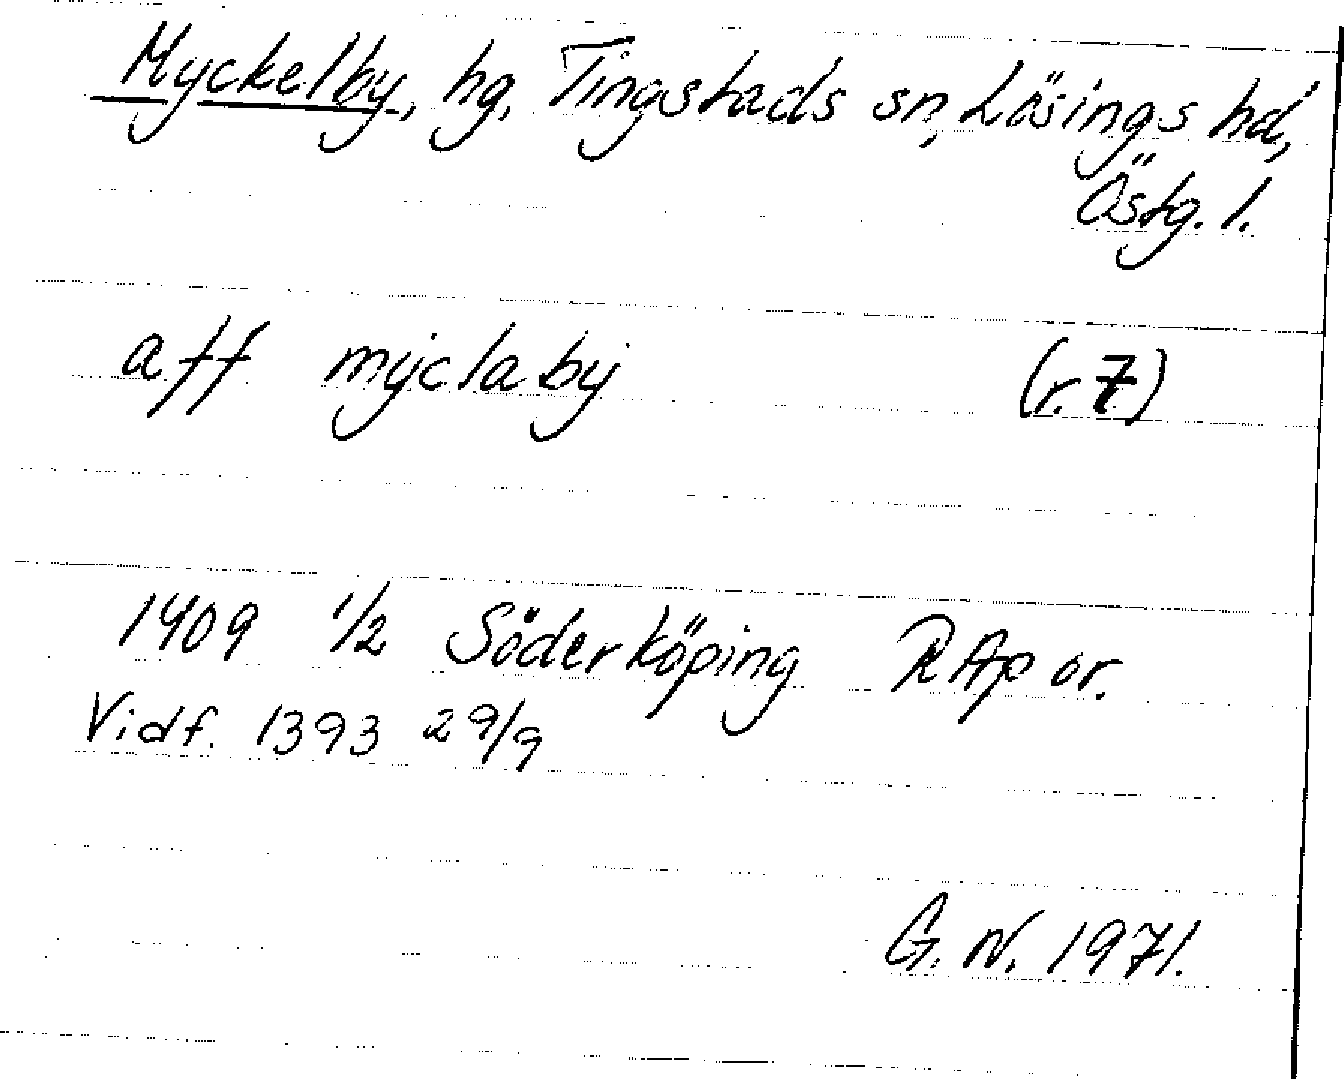 Myckelby, hg, Tingstads sn, Lösings hd,
Östg. l.
aff myclaby (r. 7)
1409 1/2 Söderköping RAp or.
Vidf. 1393 29/9
G. N. 1971.